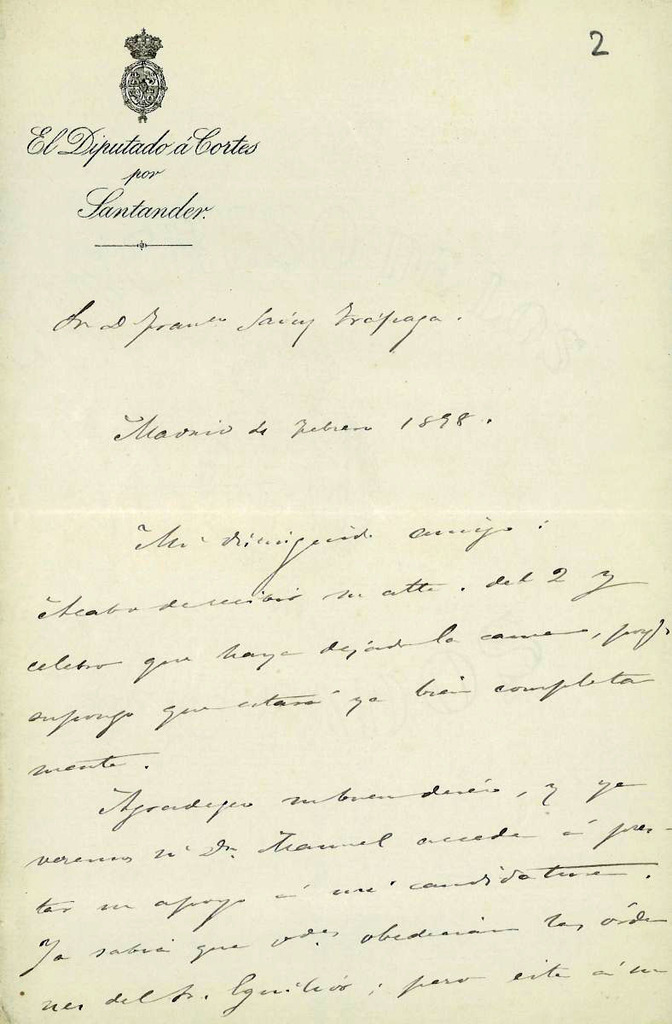 2
El Diputado á Cortes
por
Santander.
Sr D Franco Sainz Trápaga.
Madrid de Febrero 1898.
Mi distinguido amigo:
Acabo de recibir su atta. del 2 y
celebro que haya dejado la cama, pues
supongo que estará ya bien completa
mente.
Agradezco su buen deseo, y ya
veremos si Dn. Manuel accede á pres-
tar su apoyo á mi candidatura.
Ya sabia que vdes obedecian las órde
nes del Sr. Eguilior; pero este á m